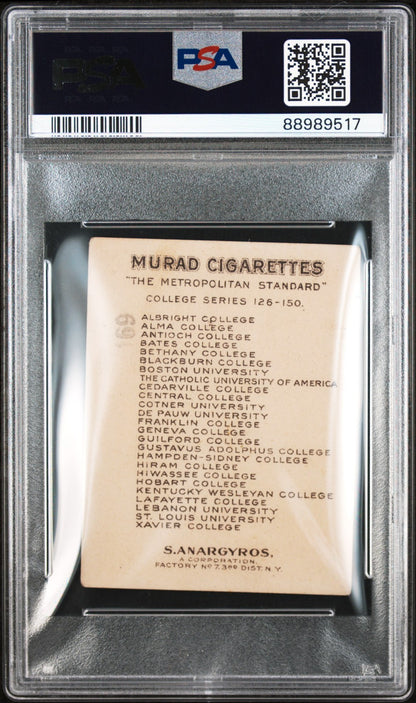 PSA
PSA
88989517
MURAD CIGARETTES
"THE METROPOLITAN STANDARD"
COLLEGE SERIES 126-150.
ALBRIGHT COLLEGE
ALMA COLLEGE
ANTIOCH COLLEGE
BATES COLLEGE
BETHANY COLLEGE
BLACKBURN COLLEGE
BOSTON UNIVERSITY
THE CATHOLIC UNIVERSITY OF AMERICA
CEDARVILLE COLLEGE
CENTRAL COLLEGE
COTNER UNIVERSITY
DE PAUW UNIVERSITY
FRANKLIN COLLEGE
GENEVA COLLEGE
GUILFORD COLLEGE
GUSTAVUS ADOLPHUS COLLEGE
HAMPDEN-SIDNEY COLLEGE
HIRAM COLLEGE
HIWASSEE COLLEGE
HOBART COLLEGE
KENTUCKY WESLEYAN COLLEGE
LAFAYETTE COLLEGE
LEBANON UNIVERSITY
ST. LOUIS UNIVERSITY
XAVIER COLLEGE
S. ANARGYROS,
A CORPORATION.
FACTORY No 7. 3RD DIST. N.Y.